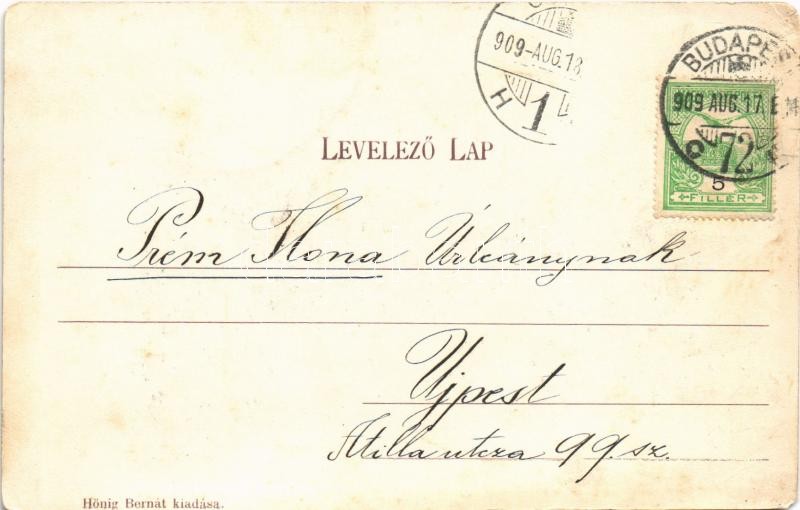 909-AUG.18
H 1
BUDAPE
909 AUG.17. E M
72
5
FILLÉR
LEVELEZŐ LAP
Prém Ilona Úrleánynak
Ujpest
Attilla utcza 99. sz.
Hönig Bernát kiadása.